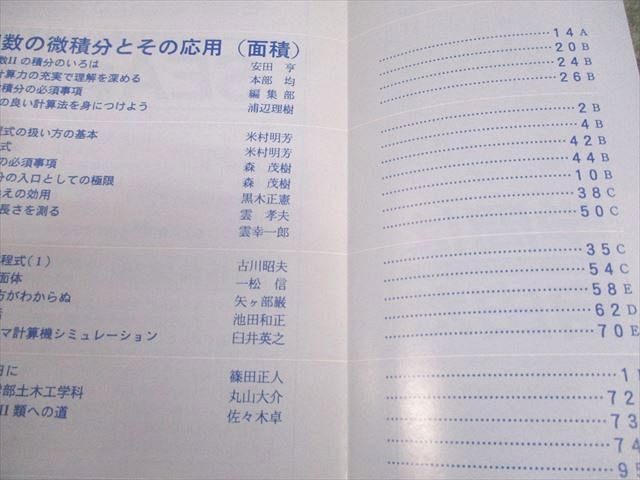 数の微積分とその応用（面積）
数IIの積分のいろは 安田 亨 14A
計算力の充実で理解を深める 本部 均 20B
積分の必須事項 編集部 24B
の良い計算法を身につけよう 浦辺理樹 26B
程式の扱い方の基本 米村明芳 2B
式 米村明芳 4B
の必須事項 森 茂樹 42B
分の入口としての極限 森 茂樹 44B
換えの効用 黒木正憲 10B
長さを測る 雲 孝夫 38C
雲幸一郎 50C
程式(1) 古川昭夫 35C
面体 一松 信 54C
方がわからぬ 矢ヶ部巌 58E
池田和正 62D
マ計算機シミュレーション 臼井英之 70E
日に 篠田正人 1
学部土木工学科 丸山大介 72
II類への道 佐々木卓 73
74
95